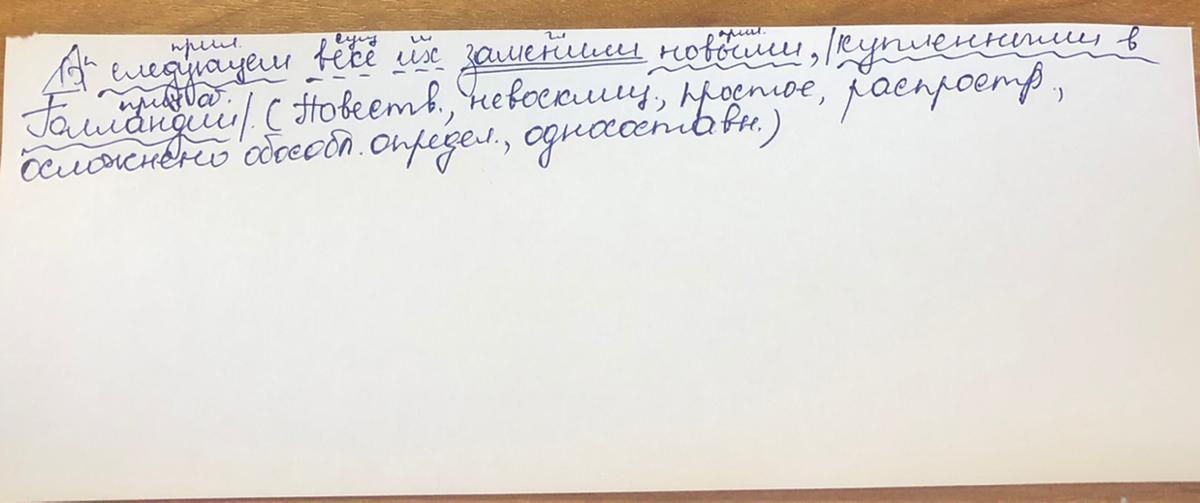 прил. сущ м г. прил.
В следующем веке их заменили новыми, /купленными в
прич. об.
Голландии/. (Повеств., невосклиц., простое, распростр.,
осложнено обособл. определ., односоставн.)